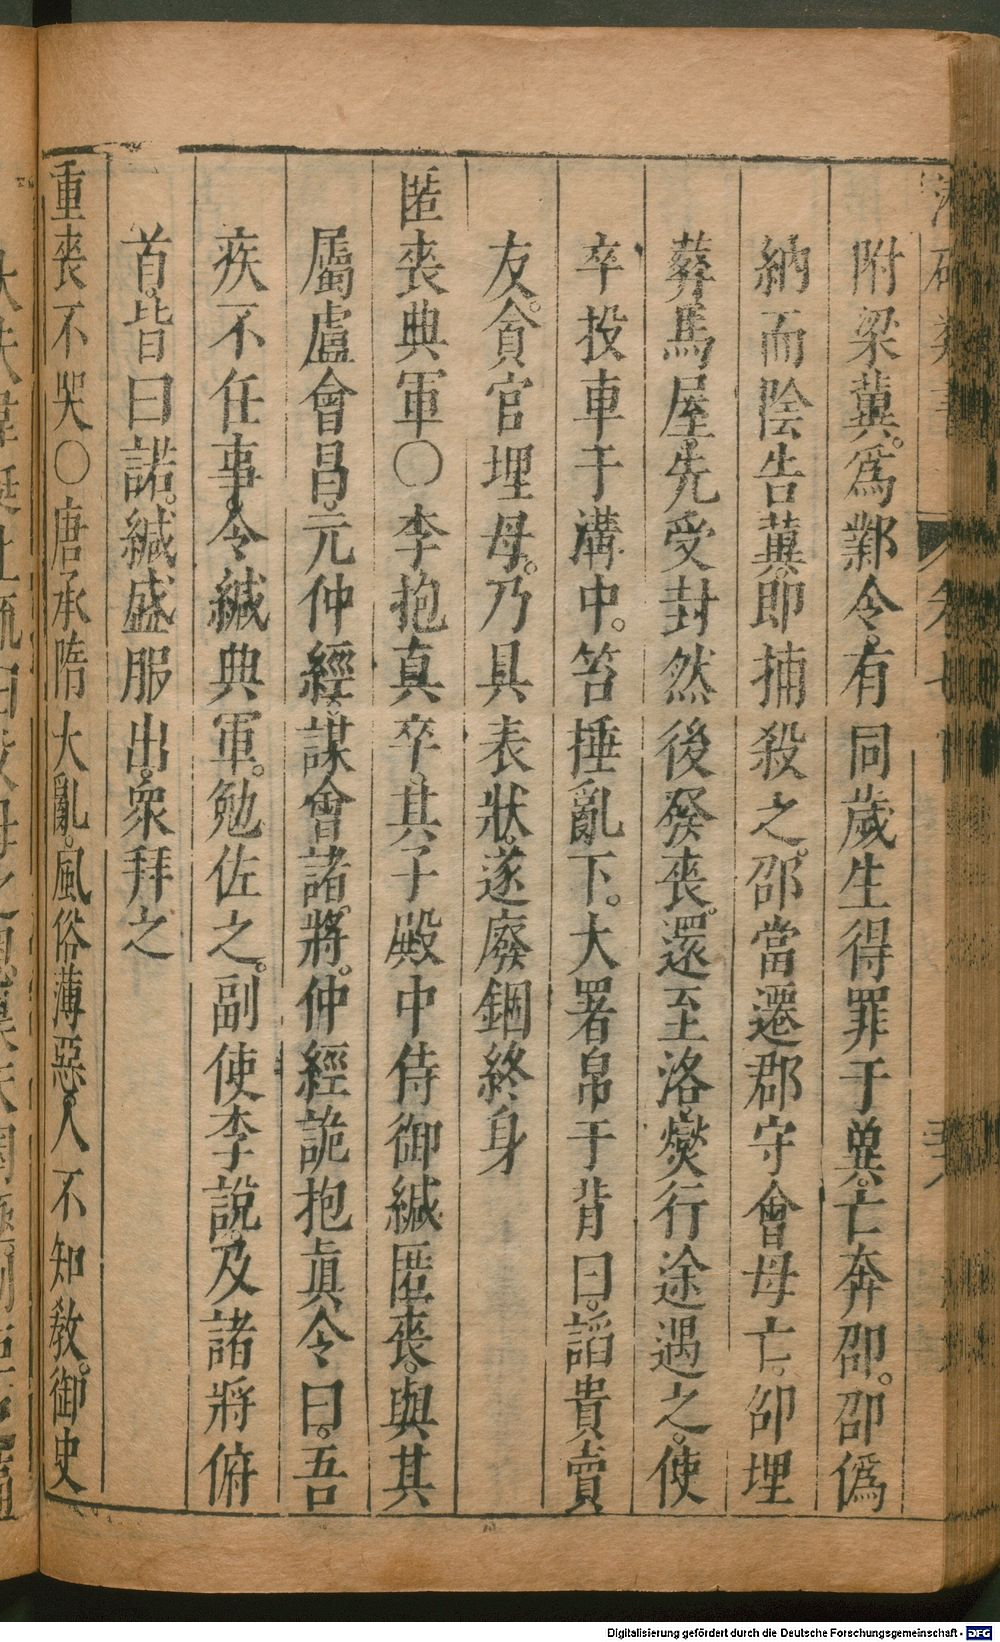 附梁冀。爲鄴令。有同歲生得罪于兾。亡奔邵。邵僞
納而陰告冀。即捕殺之。邵當遷郡守會母亡。邵埋
葬馬屋。先受封然後發喪。還至洛。爕行途遇之。使
卒投車于溝中。笞捶亂下。大署帛于背曰。謟貴賣
友。貪官埋母。乃具表狀。遂廢錮終身
匿喪典軍〇李抱真卒。其子殿中侍御緘匿喪。與其
屬盧會昌。元仲經。謀會諸將。仲經詭抱真令曰。吾
疾不任事。令緘典軍。勉佐之。副使李說及諸將俯
首。皆曰諾。緘盛服出。衆拜之
重喪不哭〇唐承隋大亂。風俗薄惡。人不知敎。御史
Digitalisierung gefördert durch die Deutsche Forschungsgemeinschaft - DFG